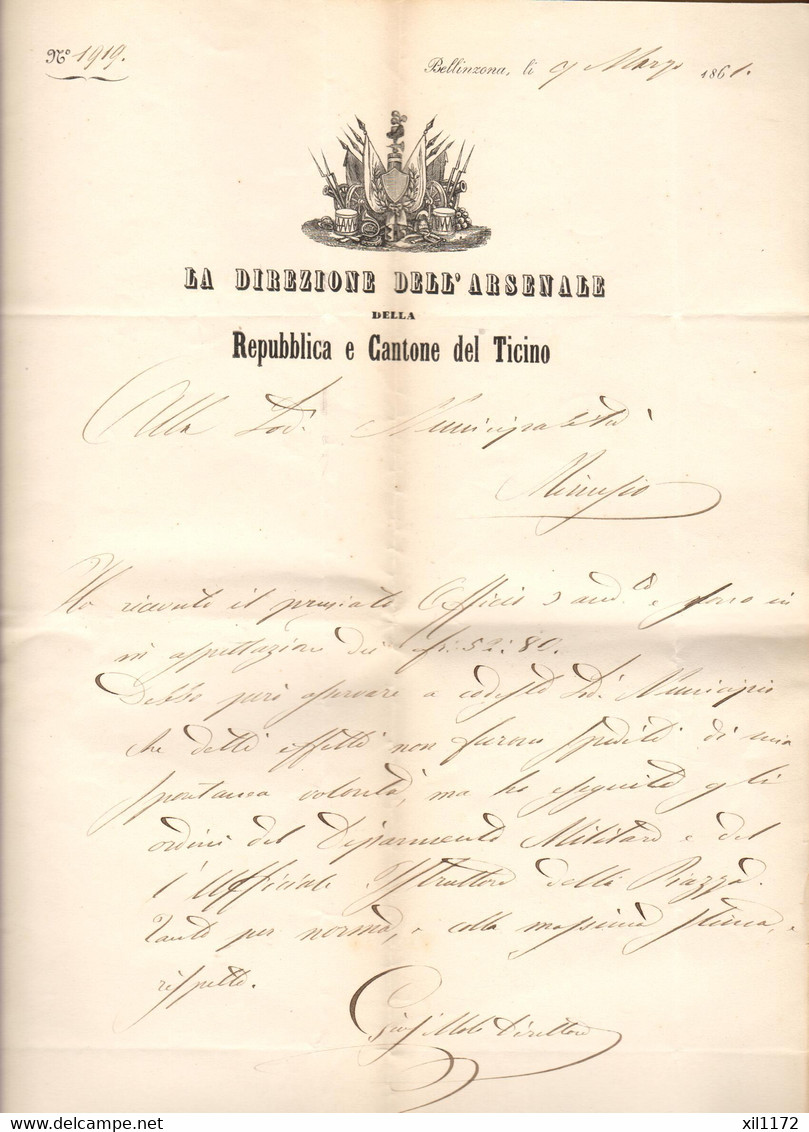 Nº 1919.
Bellinzona, li 9 Marzo 1861.
LA DIREZIONE DELL'ARSENALE
DELLA
Repubblica e Cantone del Ticino
Alla Lod. Municipalità
Minusio
Ho ricevuto il pregiato Officio 3 and.te e sono in
in aspettazione dei fr: 52: 80.
Debbo però osservare a codesto Lod. Municipio
che detti effetti non furono spediti di mia
spontanea volontà, ma ho eseguito gli
ordini del Dipartimento Militare e del
l'Ufficiale Istruttore della Piazza.
Tanto per norma, e colla massima stima, e
rispetto.
Direttore
delcampe.net
xil1172